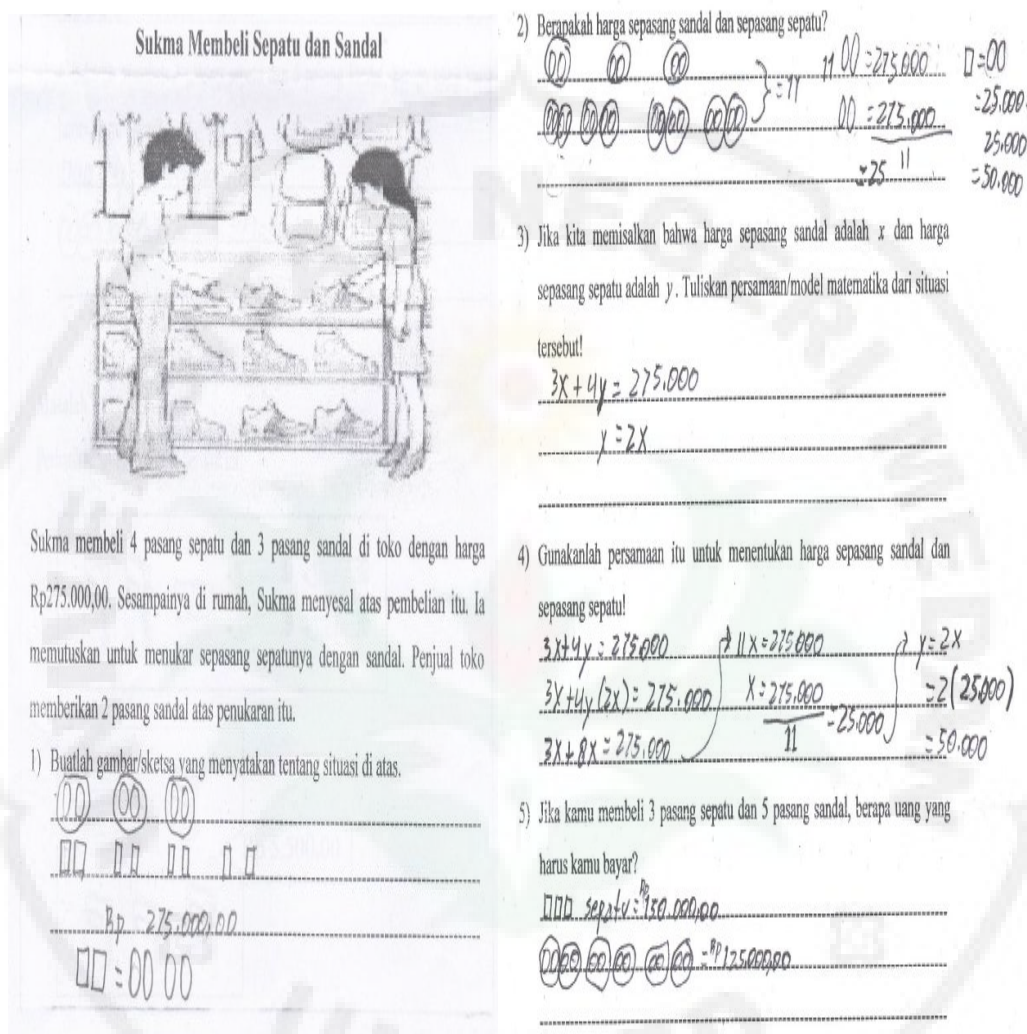 Sukma Membeli Sepatu dan Sandal
Sukma membeli 4 pasang sepatu dan 3 pasang sandal di toko dengan harga
Rp275.000,00. Sesampainya di rumah, Sukma menyesal atas pembelian itu. Ia
memutuskan untuk menukar sepasang sepatunya dengan sandal. Penjual toko
memberikan 2 pasang sandal atas penukaran itu.
1) Buatlah gambar/sketsa yang menyatakan tentang situasi di atas.
Rp 275.000,00
2) Berapakah harga sepasang sandal dan sepasang sepatu?
= 11
11 00 = 275.000
00 = 275.000
11
= 25
□ = 00
= 25.000
25.000
= 50.000
3) Jika kita memisalkan bahwa harga sepasang sandal adalah x dan harga
sepasang sepatu adalah y. Tuliskan persamaan/model matematika dari situasi
tersebut!
3x + 4y = 275.000
y = 2x
4) Gunakanlah persamaan itu untuk menentukan harga sepasang sandal dan
sepasang sepatu!
3x + 4y = 275.000
3x + 4y (2x) = 275.000
3x + 8x = 275.000
→ 11x = 275.000
x = 275.000
11
= 25.000
→ y = 2x
= 2 (25.000)
= 50.000
5) Jika kamu membeli 3 pasang sepatu dan 5 pasang sandal, berapa uang yang
harus kamu bayar?
sepatu = Rp 150.000,00
= Rp 125.000,00
NEGERI MEDAN